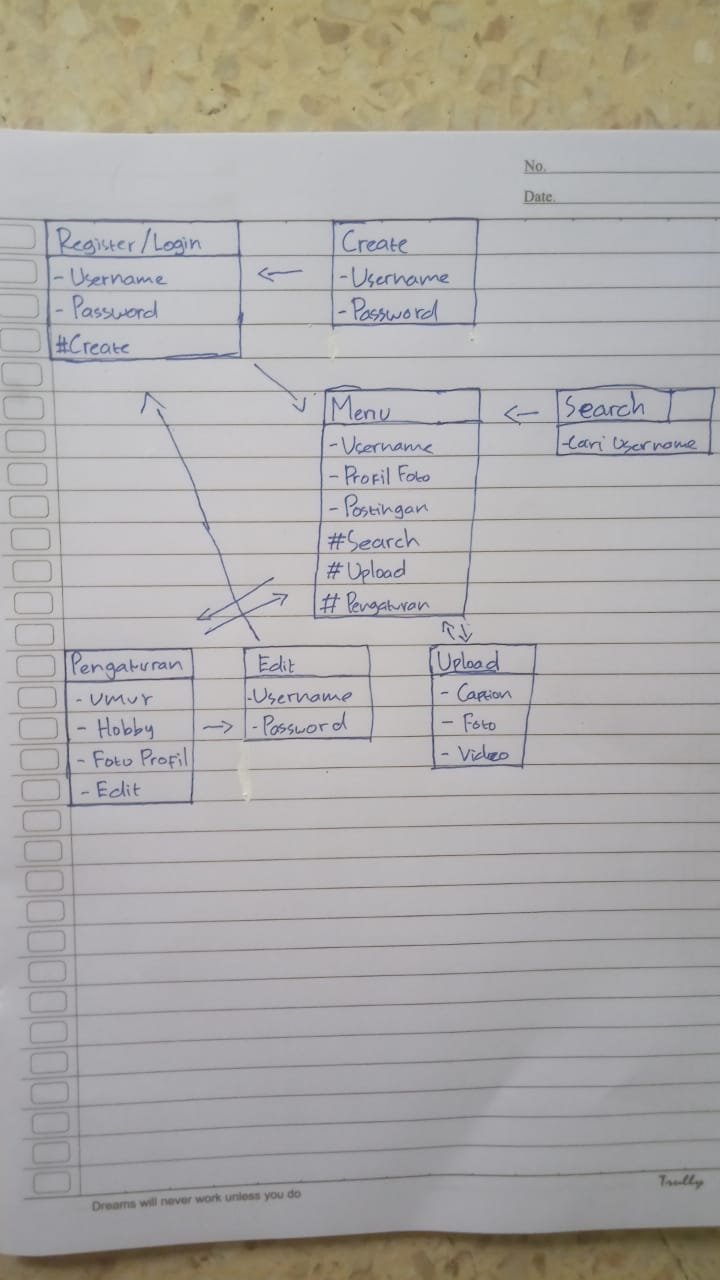 No.
Date.
Register/Login
- Username
- Password
#Create
Create
- Username
- Password
Menu
- Username
- Profil Foto
- Postingan
#Search
# Upload
# Pengaturan
Search
- Cari Username
Pengaturan
- Umur
- Hobby
- Foto Profil
- Edit
Edit
- Username
- Password
Upload
- Caption
- Foto
- Video
Dreams will never work unless you do
Trully